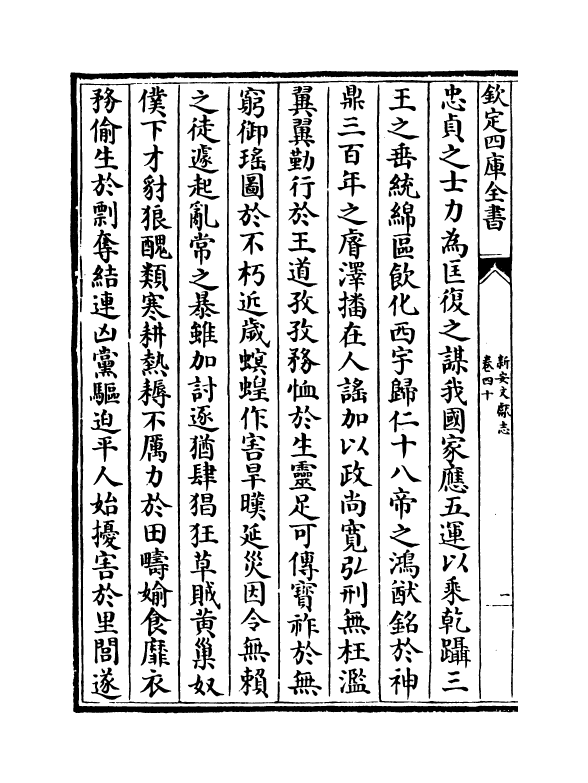 欽定四庫全書
新安文獻志
卷四十
一
忠貞之士力為匡復之謀我國家應五運以乘乾躡三
王之垂統綿區飲化西宇歸仁十八帝之鴻猷銘於神
鼎三百年之睿澤播在人謠加以政尚寬弘刑無枉濫
翼翼勤行於王道孜孜務恤於生靈足可傳寶祚於無
窮御瑤圖於不朽近歲螟蝗作害旱暵延災因令無賴
之徒遽起亂常之暴雖加討逐猶肆猖狂草賊黃巢奴
僕下才豺狼醜類寒耕熱耨不厲力於田疇媮食靡衣
務偷生於剽奪結連凶黨驅迫平人始擾害於里閭遂